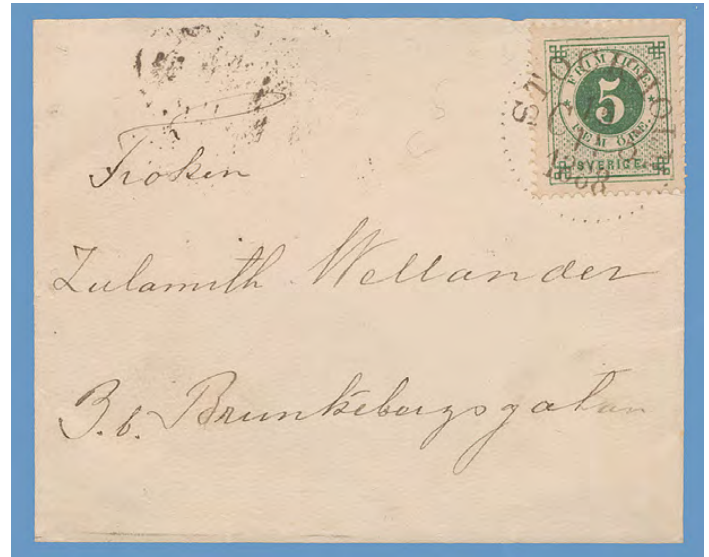 FRIMÄRKE
5
FEM ÖRE.
SVERIGE
STOCKHOL
Fröken
Zulamith Wellander
3.b. Brunkebergsgatan